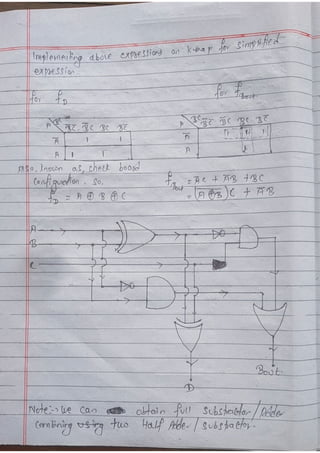 Implementing above expressions on K-map for simplified
expression.
for f_D
for f_Bout
A BC B̅C̅ B̅C BC BC̅
A̅ 1 1
A 1 1
A BC B̅C̅ B̅C BC BC̅
A̅ 1 1 1
A 1
Also, known as, check board
configuration. So,
f_D = A ⊕ B ⊕ C
f_Bout = A̅C + A̅B + BC
= (A ⊕ B) C + A̅B
A
B
C
D
Bout
Note:- We can obtain full Substractor / Adder
Combining using two Half Adder / Substractor.